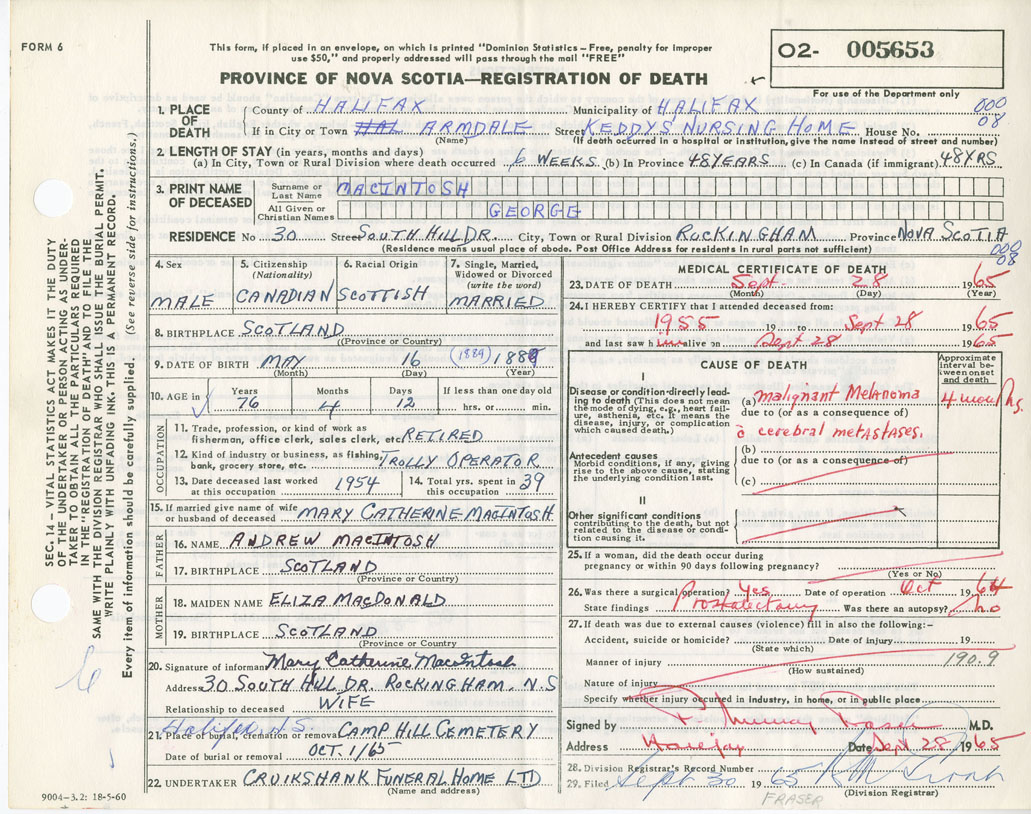 FORM 6
This form, if placed in an envelope, on which is printed "Dominion Statistics – Free, penalty for improper
use $50," and properly addressed will pass through the mail "FREE"
PROVINCE OF NOVA SCOTIA—REGISTRATION OF DEATH
O2- 005653
For use of the Department only
000
08
1. PLACE OF DEATH
County of HALIFAX Municipality of HALIFAX
If in City or Town HAL ARMDALE Street KEDDYS NURSING HOME House No.
(Name) (If death occurred in a hospital or institution, give the name instead of street and number)
2. LENGTH OF STAY (in years, months and days)
(a) In City, Town or Rural Division where death occurred 6 WEEKS (b) In Province 48 YEARS (c) In Canada (if immigrant) 48 YRS
3. PRINT NAME OF DECEASED
Surname or Last Name MACINTOSH
All Given or Christian Names GEORGE
RESIDENCE No 30 Street SOUTH HILL DR. City, Town or Rural Division ROCKINGHAM Province NOVA SCOTIA
(Residence means usual place of abode. Post Office Address for residents in rural parts not sufficient)
000
08
4. Sex
MALE
5. Citizenship
(Nationality)
CANADIAN
6. Racial Origin
SCOTTISH
7. Single, Married,
Widowed or Divorced
(write the word)
MARRIED
8. BIRTHPLACE SCOTLAND
(Province or Country)
9. DATE OF BIRTH MAY 16 (1889) 1889
(Month) (Day) (Year)
10. AGE in
Years 76
Months 4
Days 12
If less than one day old
hrs. or min.
OCCUPATION
11. Trade, profession, or kind of work as
fisherman, office clerk, sales clerk, etc. RETIRED
12. Kind of industry or business, as fishing,
bank, grocery store, etc. TROLLY OPERATOR
13. Date deceased last worked
at this occupation 1954
14. Total yrs. spent in
this occupation 39
15. If married give name of wife
or husband of deceased MARY CATHERINE MACINTOSH
FATHER
16. NAME ANDREW MACINTOSH
17. BIRTHPLACE SCOTLAND
(Province or Country)
MOTHER
18. MAIDEN NAME ELIZA MACDONALD
19. BIRTHPLACE SCOTLAND
(Province or Country)
20. Signature of informant Mary Catherine MacIntosh
Address 30 SOUTH HILL DR. ROCKINGHAM, N.S
Relationship to deceased WIFE
Halifax, N.S.
21. Place of burial, cremation or removal CAMP HILL CEMETERY
Date of burial or removal OCT. 1/65
22. UNDERTAKER CRUIKSHANK FUNERAL HOME LTD
(Name and address)
9004-3.2: 18-5-60
MEDICAL CERTIFICATE OF DEATH
23. DATE OF DEATH Sept. 28 1965
(Month) (Day) (Year)
24. I HEREBY CERTIFY that I attended deceased from:
1955 19 to Sept 28 1965
and last saw him alive on Sept 28 1965
CAUSE OF DEATH
Approximate
interval be-
tween onset
and death
I
Disease or condition directly lead-
ing to death (This does not mean
the mode of dying, e.g., heart fail-
ure, asthenia, etc. It means the
disease, injury, or complication
which caused death.)
(a) Malignant Melanoma
4 months.
due to (or as a consequence of)
c̄ cerebral metastases.
Antecedent causes
Morbid conditions, if any, giving
rise to the above cause, stating
the underlying condition last.
(b)
due to (or as a consequence of)
(c)
II
Other significant conditions
contributing to the death, but not
related to the disease or condi-
tion causing it.
25. If a woman, did the death occur during
pregnancy or within 90 days following pregnancy?
(Yes or No)
26. Was there a surgical operation? Yes Date of operation Oct 1964
State findings Prostatectomy Was there an autopsy? no
27. If death was due to external causes (violence) fill in also the following:-
Accident, suicide or homicide? Date of injury 19
(State which)
Manner of injury 190.9
(How sustained)
Nature of injury
Specify whether injury occurred in industry, in home, or in public place
Signed by Murray M.D.
Address Halifax Date Sept 28 1965
28. Division Registrar's Record Number
29. Filed Sept 30 1965
(Division Registrar)
FRASER
SEC. 14 – VITAL STATISTICS ACT MAKES IT THE DUTY
OF THE UNDERTAKER OR PERSON ACTING AS UNDER-
TAKER TO OBTAIN ALL THE PARTICULARS REQUIRED
IN THE "REGISTRATION OF DEATH" AND TO FILE THE
SAME WITH THE DIVISION REGISTRAR WHO SHALL ISSUE THE BURIAL PERMIT.
WRITE PLAINLY WITH UNFADING INK. THIS IS A PERMANENT RECORD.
Every item of information should be carefully supplied. (See reverse side for instructions.)